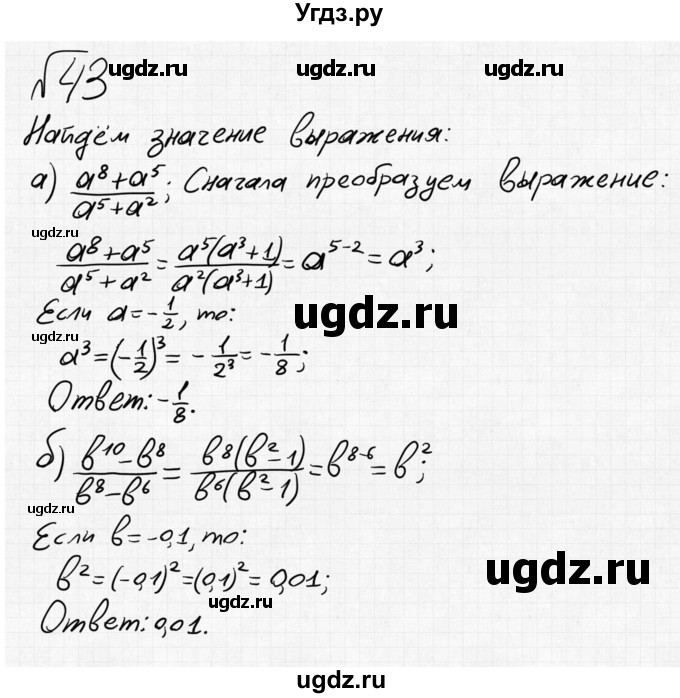 Угдз.ру
№43
ugdz.ru ugdz.ru
Найдём значение выражения:
а) (a^8+a^5)/(a^5+a^2); Сначала преобразуем выражение:
ugdz.ru
(a^8+a^5)/(a^5+a^2) = (a^5(a^3+1))/(a^2(a^3+1)) = a^(5-2) = a^3;
Если a=-1/2, то:
ugdz.ru
ugdz.ru
a^3=(-1/2)^3=-1/2^3=-1/8;
Ответ:-1/8.
б) (b^10-b^8)/(b^8-b^6) = (b^8(b^2-1))/(b^6(b^2-1)) = b^(8-6) = b^2;
ugdz.ru
Если b=-0,1, то:
b^2=(-0,1)^2=(0,1)^2=0,01;
ugdz.ru
ugdz.ru
Ответ: 0,01.
ugdz.ru